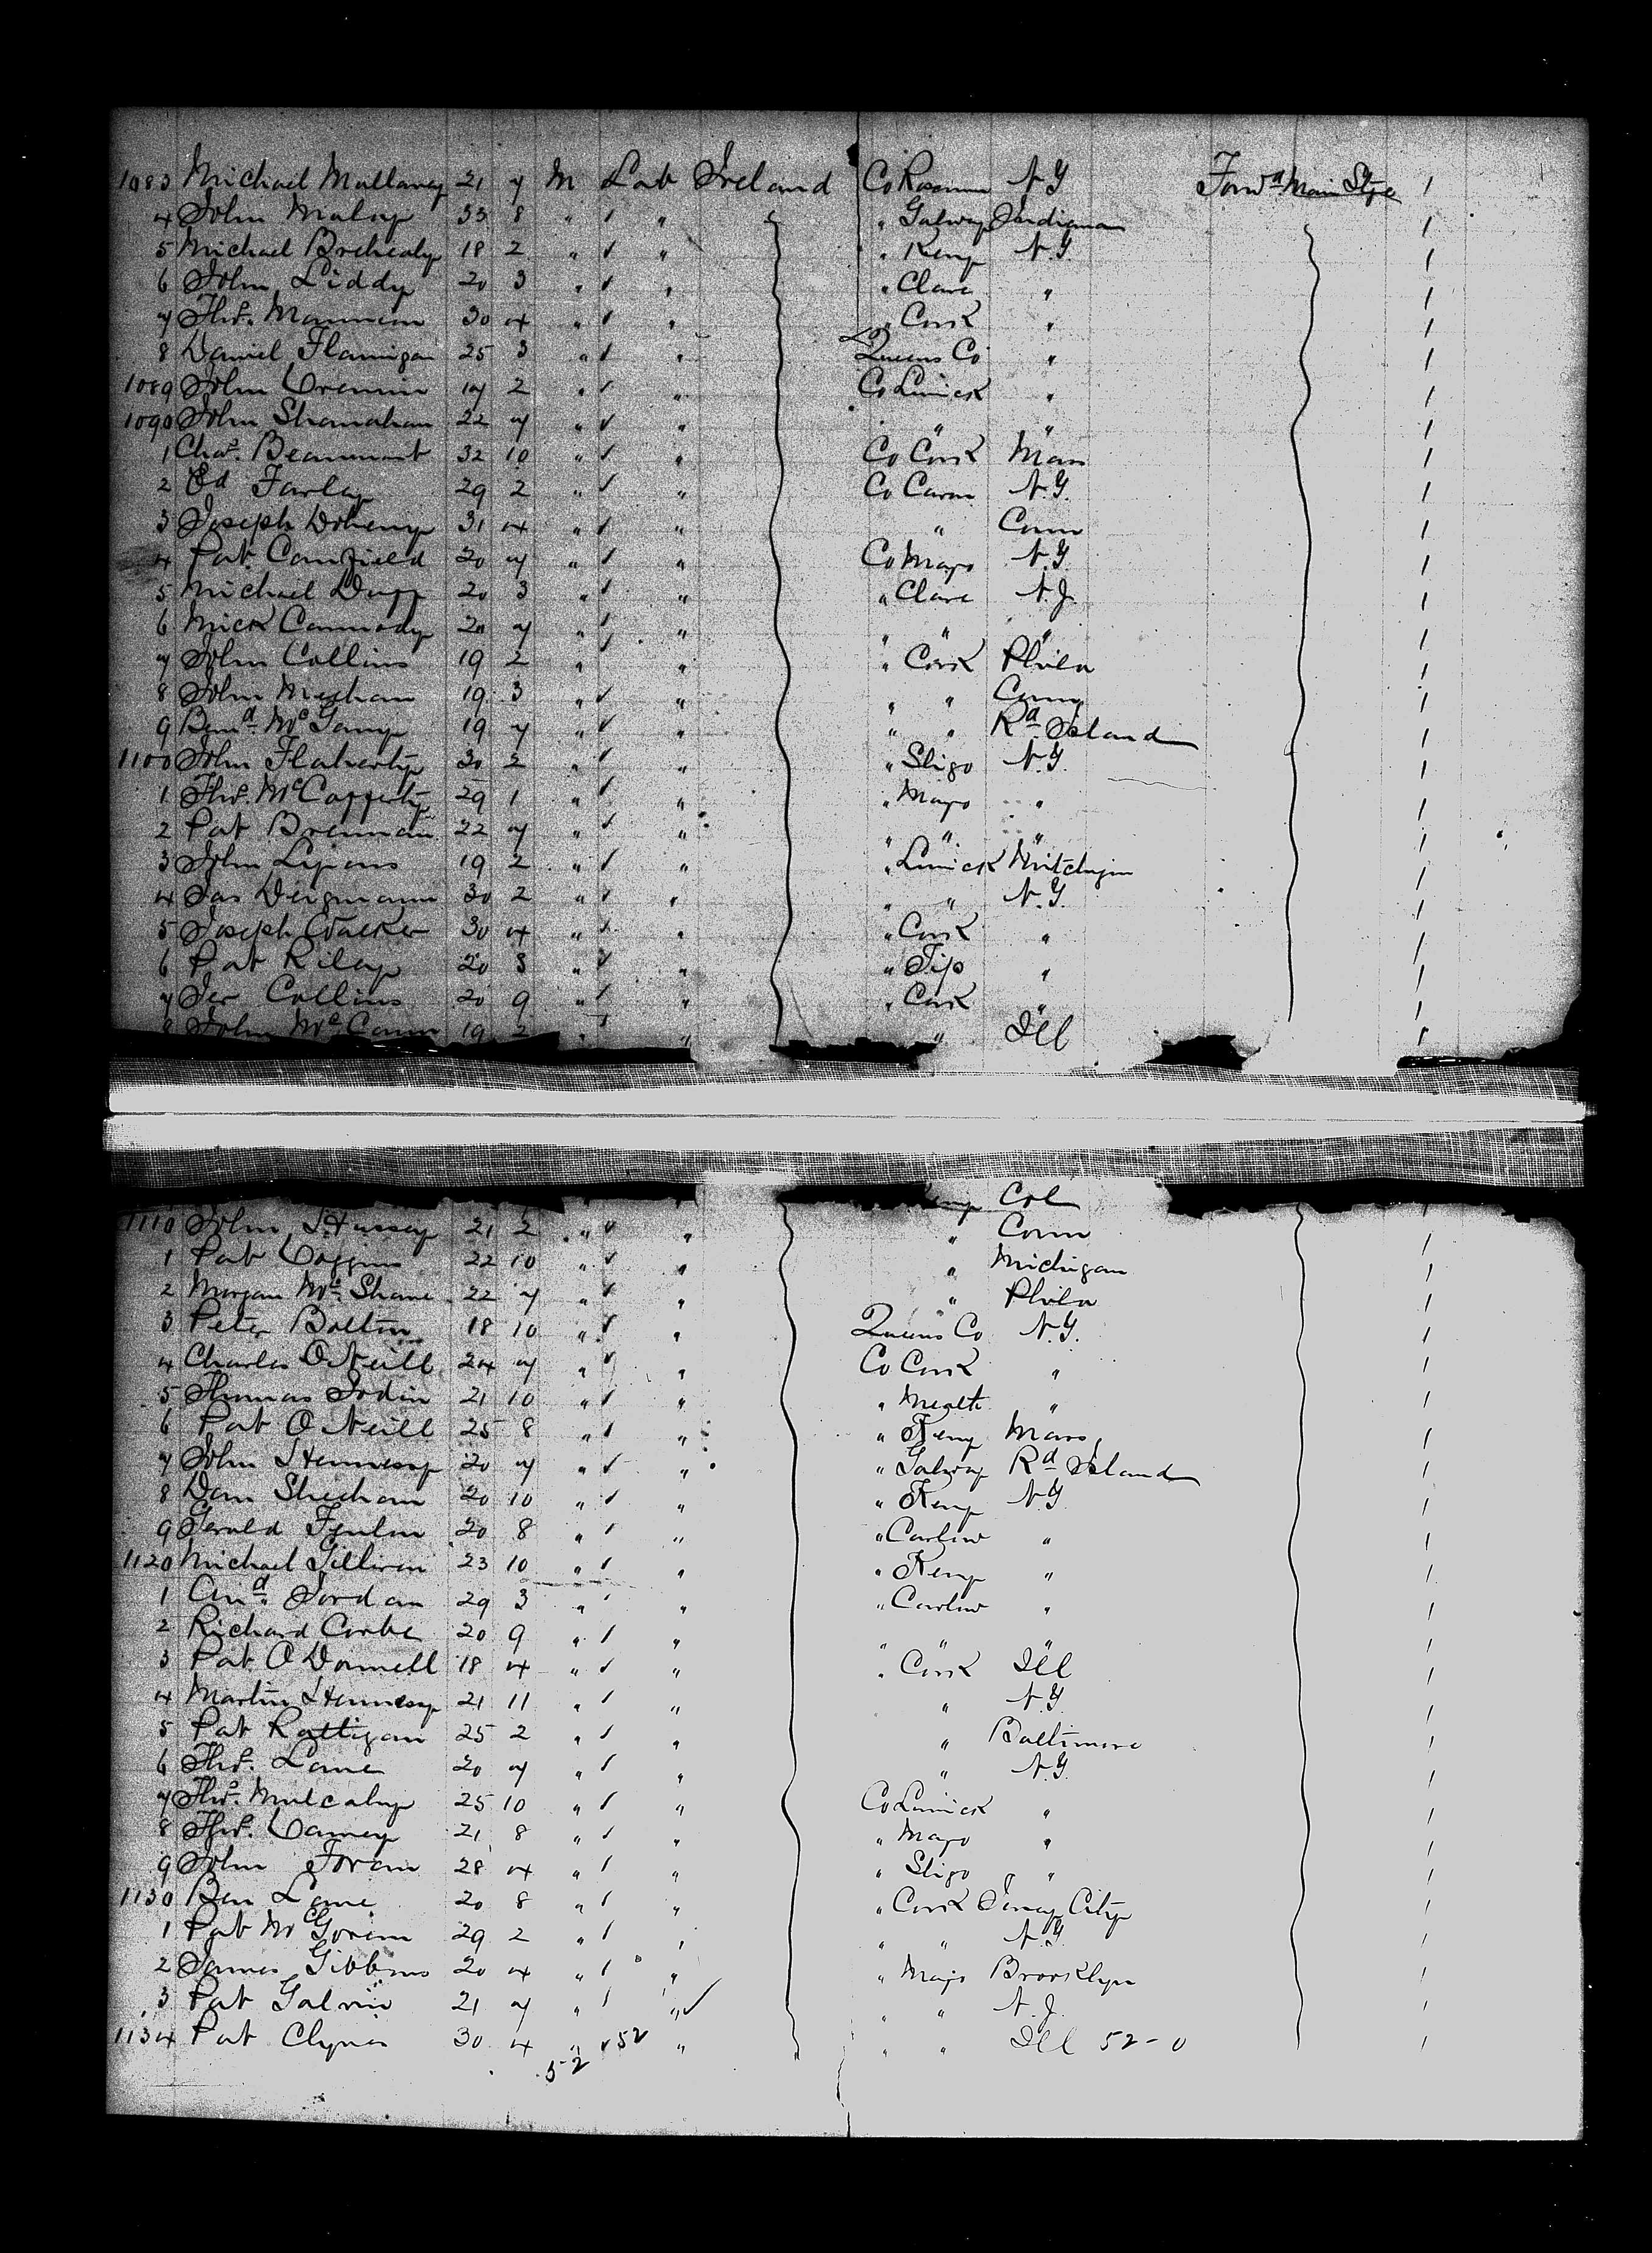 1083 Michael Mullaney 21 7 M Lab Ireland Co Roscmn N.Y Forwd Main Stge 1
4 John Malay 33 8 " " " " Galway Indiana 1
5 Michael 18 2 " " " " Kerry N.Y. 1
6 John Liddy 20 3 " " " " Clare " 1
7 Thos. Mannion 30 4 " " " " Cork " 1
8 Daniel Flannigan 25 3 " " " Queens Co " 1
1089 John Cremin 17 2 " " " Co Limick " 1
1090 John Shanahan 22 7 " " " " " 1
1 Chas. Beaumont 32 10 " " " Co Cork Mass 1
2 Ed Farley 29 2 " " " Co Cavan N.Y. 1
3 Joseph Doheny 31 4 " " " " Conn 1
4 Pat Canfield 20 7 " " " Co Mayo N.Y. 1
5 Michael Duffy 20 3 " " " " Clare N.J. 1
6 Mick Cammody 20 7 " " " " " " 1
7 John Collins 19 2 " " " Cork Phila 1
8 John Meehan 19 3 " " " " Conn 1
9 Bernd. McGarry 19 7 " " " " Rd Island 1
1100 John Flaherty 30 2 " " " Sligo N.Y. 1
1 Thos. McCafferty 29 1 " " " Mayo " 1
2 Pat Brennan 22 7 " " " " " " 1
3 John Lyons 19 2 " " " Limick Mitchigin 1
4 Jas Deignan 30 2 " " " " N.Y. 1
5 Joseph Walker 30 4 " " " Cork " 1
6 Pat Riley 20 3 " " " Tip " 1
7 Jer Collins 20 9 " " " Cork " 1
8 John McCann 19 2 " " " Ill 1
Col
1110 John Hussey 21 2 " " " " Conn 1
1 Pat Coffin 22 10 " " " " Michigan 1
2 Morgan McShane 22 7 " " " " Phila 1
3 Peter Bolton 18 10 " " " Queens Co N.Y. 1
4 Charles O'Neill 24 7 " " " Co Cork " 1
5 Thomas Jodin 21 10 " " " Meath " 1
6 Pat O'Neill 25 8 " " " Kerry Mass 1
7 John Hennessy 20 7 " " " Galway Rd Island 1
8 Dan Sheehan 20 10 " " " Kerry N.Y 1
9 Gerald Fenlon 20 8 " " " Carlow " 1
1120 Michael Gilliven 23 10 " " " Kerry " 1
1 And. Jordan 29 3 " " " Carlow " 1
2 Richard Corbe 20 9 " " " " " " 1
3 Pat O'Donnell 18 4 " " " Cork Ill 1
4 Martin Hennessy 21 11 " " " " N.Y. 1
5 Pat Rattigan 25 2 " " " " Baltimore 1
6 Thos. Lane 20 7 " " " " N.Y. 1
7 Thos. Mulcahy 25 10 " " " Co Limick " 1
8 Thos. Carney 21 8 " " " Mayo " 1
9 John Foran 28 4 " " " Sligo " " 1
1130 Ben Lane 20 8 " " " Cork Jersey City 1
1 Pat McGovern 29 2 " " " " N.Y 1
2 James Gibbons 20 4 " " " Mayo Brooklyn 1
3 Pat Galvin 21 7 " " " " " N.J. 1
1134 Pat Clynes 30 4 " 52 " " " Ill 52-0 1
52